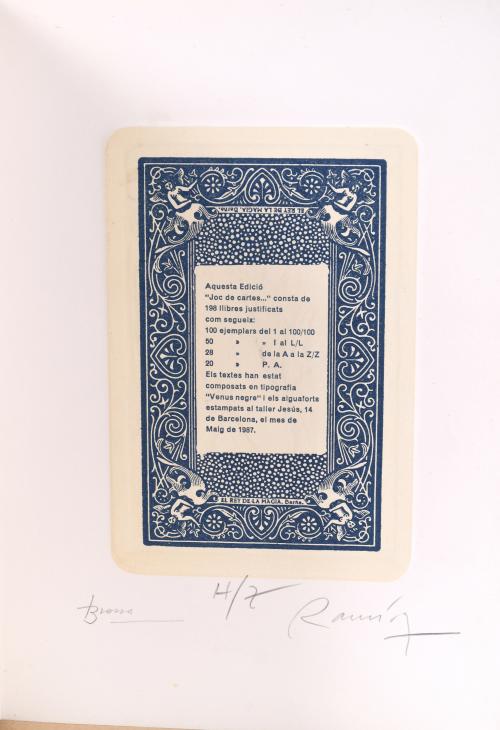 EL REY DE LA MAGIA. Barna.
Aquesta Edició
"Joc de cartes..." consta de
198 llibres justificats
com segueix:
100 exemplars del 1 al 100/100
50 » » I al L/L
28 » de la A a la Z/Z
20 » P. A.
Els textes han estat
composats en tipografia
"Venus negre" i els aiguaforts
estampats al taller Jesús, 14
de Barcelona, el mes de
Maig de 1987.
EL REY DE LA MAGIA. Barna.
Brossa H/Z